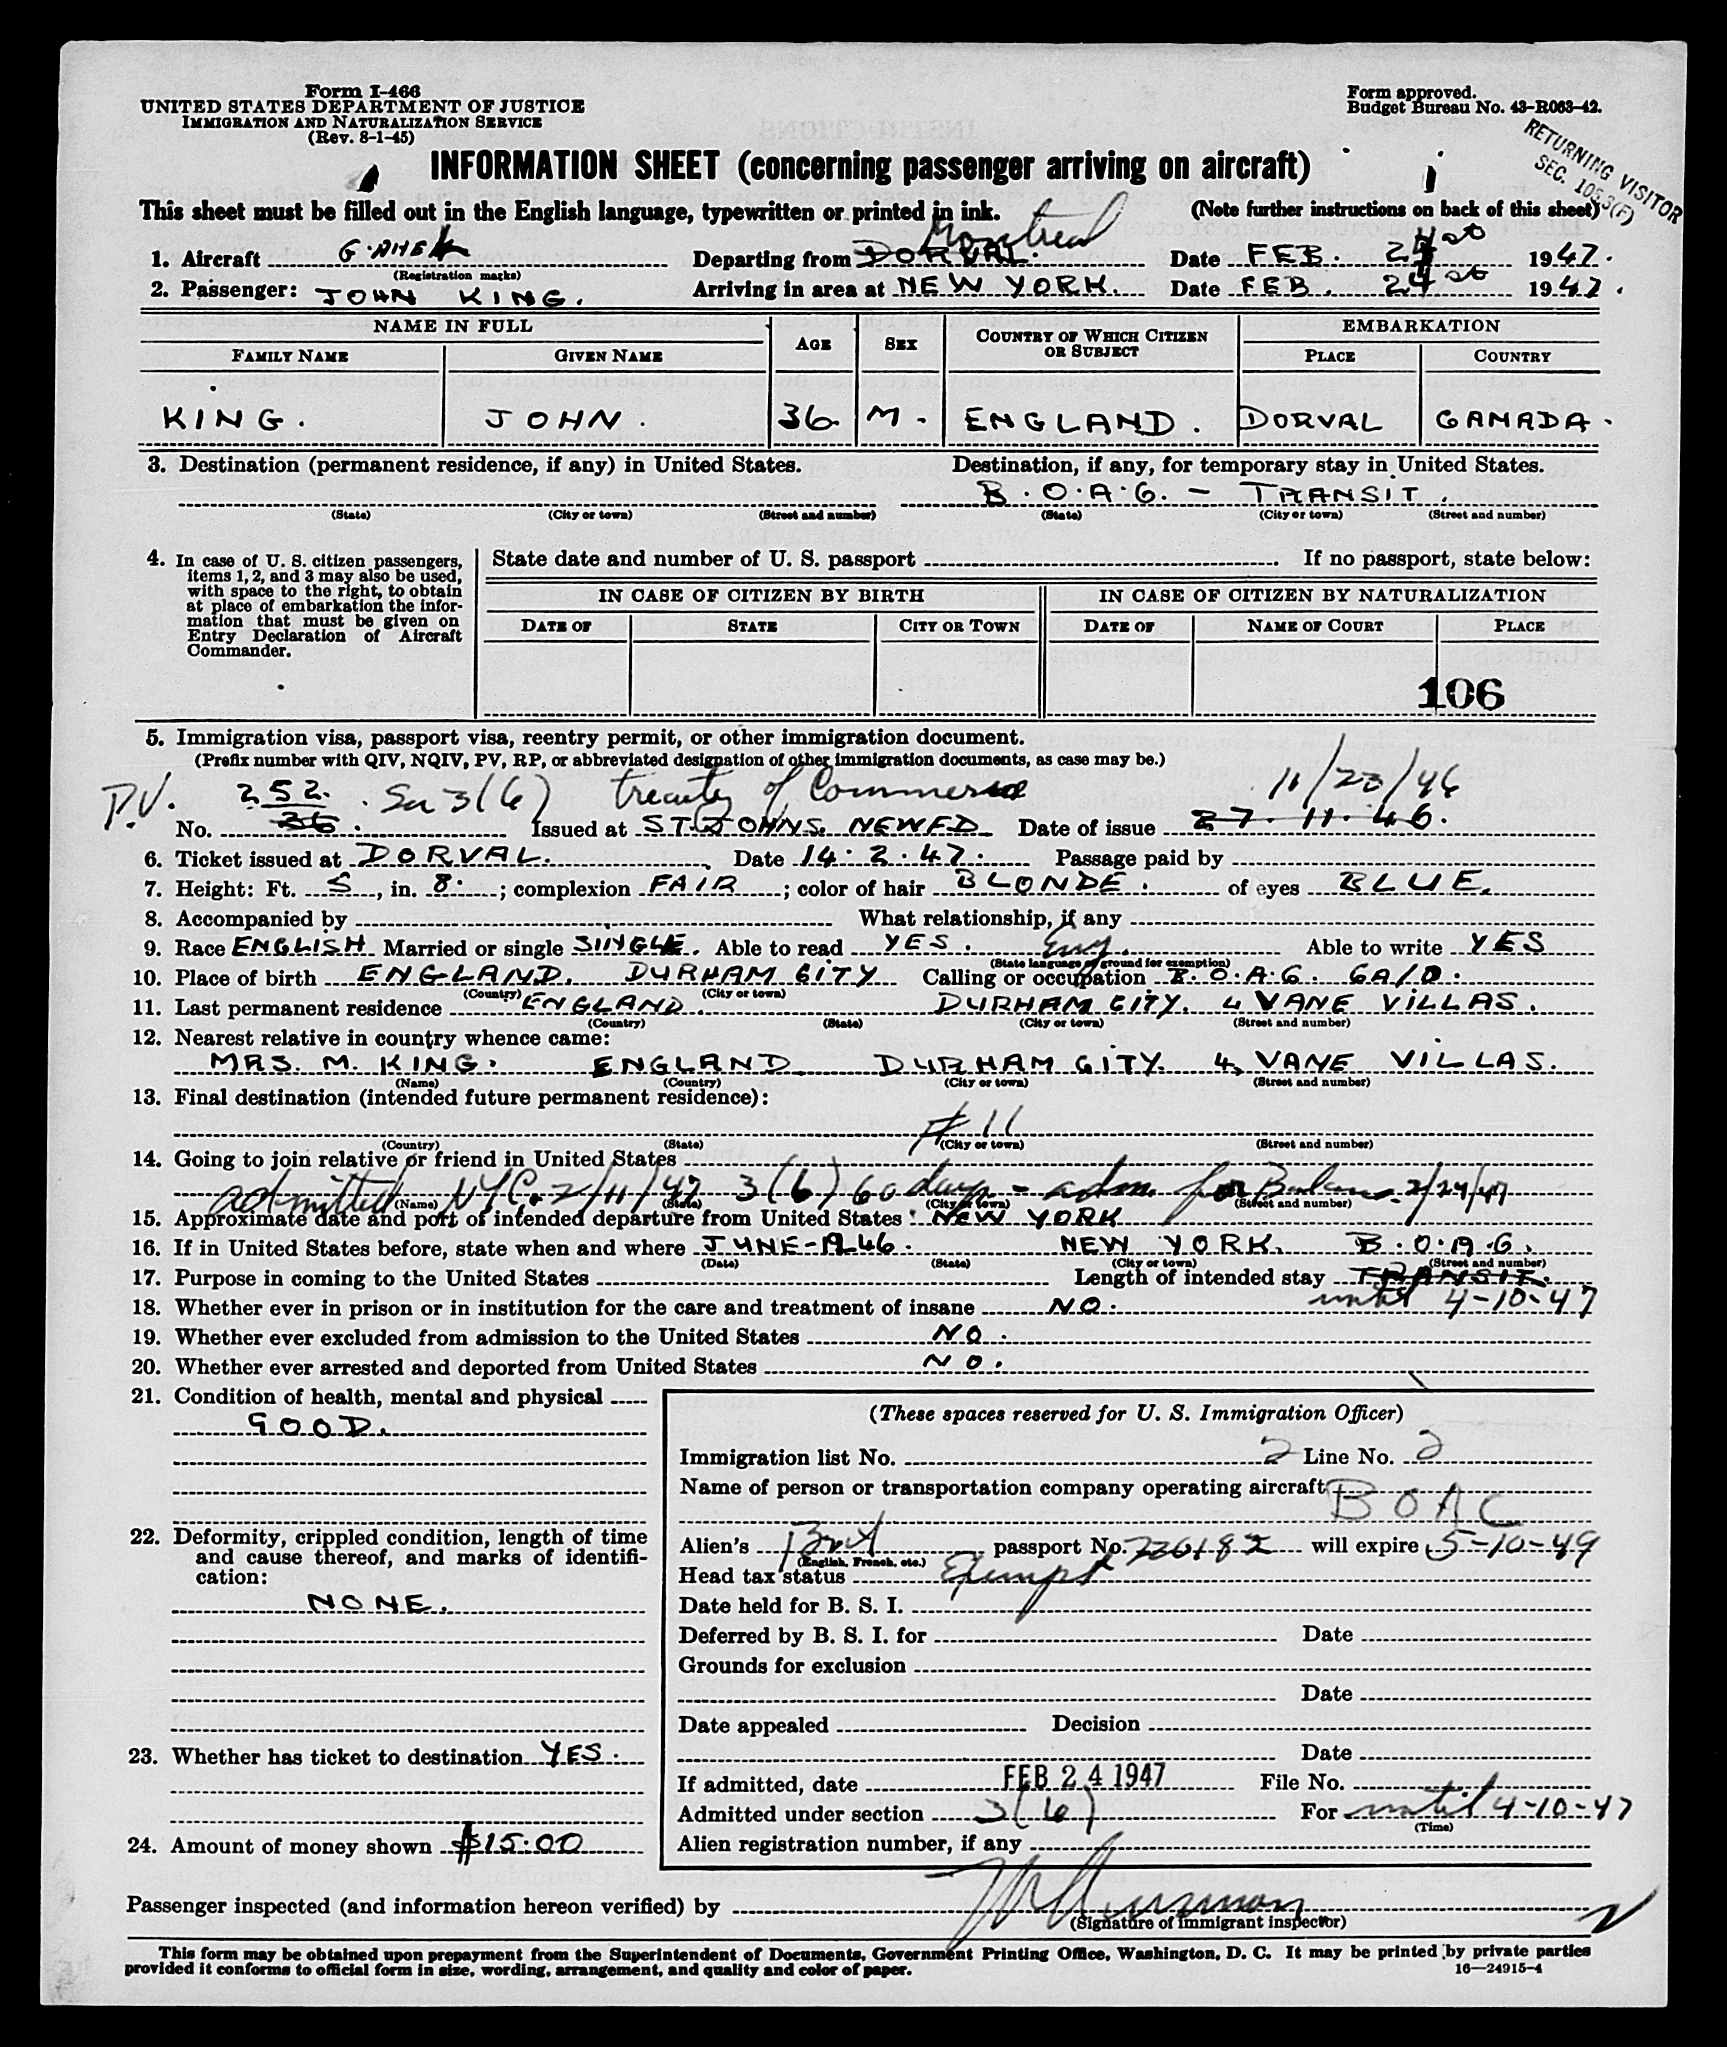 Form I-466
UNITED STATES DEPARTMENT OF JUSTICE
IMMIGRATION AND NATURALIZATION SERVICE
(Rev. 8-1-45)
Form approved.
Budget Bureau No. 43-R063-42.
RETURNING VISITOR
SEC. 105.3(F)
INFORMATION SHEET (concerning passenger arriving on aircraft)
This sheet must be filled out in the English language, typewritten or printed in ink. (Note further instructions on back of this sheet)
Montreal
1. Aircraft G·AHEK Departing from DORVAL. Date FEB. 24 1947.
(Registration marks)
2. Passenger: JOHN KING. Arriving in area at NEW YORK. Date FEB. 24 1947.
NAME IN FULL AGE SEX COUNTRY OF WHICH CITIZEN OR SUBJECT EMBARKATION
FAMILY NAME GIVEN NAME PLACE COUNTRY
KING. JOHN. 36. M. ENGLAND. DORVAL CANADA.
3. Destination (permanent residence, if any) in United States. Destination, if any, for temporary stay in United States.
B.O.A.C. - TRANSIT.
(State) (City or town) (Street and number) (State) (City or town) (Street and number)
4. In case of U. S. citizen passengers, items 1, 2, and 3 may also be used, with space to the right, to obtain at place of embarkation the information that must be given on Entry Declaration of Aircraft Commander.
State date and number of U. S. passport If no passport, state below:
IN CASE OF CITIZEN BY BIRTH IN CASE OF CITIZEN BY NATURALIZATION
DATE OF STATE CITY OR TOWN DATE OF NAME OF COURT PLACE
106
5. Immigration visa, passport visa, reentry permit, or other immigration document.
(Prefix number with QIV, NQIV, PV, RP, or abbreviated designation of other immigration documents, as case may be.)
P.V. 252. Sec 3(6) treaty of Commerce 11/23/46
No. 36. Issued at ST. JOHNS. NEWFD Date of issue 27.11.46.
6. Ticket issued at DORVAL. Date 14.2.47. Passage paid by
7. Height: Ft. 5, in. 8.; complexion FAIR; color of hair BLONDE. of eyes BLUE.
8. Accompanied by What relationship, if any
9. Race ENGLISH Married or single SINGLE. Able to read YES. Eng. Able to write YES
(State language or ground for exemption)
10. Place of birth ENGLAND. DURHAM CITY Calling or occupation B.O.A.C. GA/O.
(Country) (City or town)
11. Last permanent residence ENGLAND. DURHAM CITY. 4 VANE VILLAS.
(Country) (State) (City or town) (Street and number)
12. Nearest relative in country whence came:
MRS. M. KING. ENGLAND DURHAM CITY. 4, VANE VILLAS.
(Name) (Country) (City or town) (Street and number)
13. Final destination (intended future permanent residence):
# 11
(Country) (State) (City or town) (Street and number)
14. Going to join relative or friend in United States
admitted NYC. 2/11/47 3(6) 60 days - adm. for Balance 2/24/47
(Name) (State) (City or town) (Street and number)
15. Approximate date and port of intended departure from United States NEW YORK
16. If in United States before, state when and where JUNE-1946. NEW YORK. B.O.A.C.
(Date) (State) (City or town) (Street and number)
17. Purpose in coming to the United States Length of intended stay TRANSIT.
until 4-10-47
18. Whether ever in prison or in institution for the care and treatment of insane NO.
19. Whether ever excluded from admission to the United States NO.
20. Whether ever arrested and deported from United States NO.
21. Condition of health, mental and physical
GOOD.
22. Deformity, crippled condition, length of time and cause thereof, and marks of identification:
NONE.
23. Whether has ticket to destination YES.
24. Amount of money shown $15.00
(These spaces reserved for U. S. Immigration Officer)
Immigration list No. 2 Line No. 2
Name of person or transportation company operating aircraft
BOAC
Alien's Brit passport No. 220182 will expire 5-10-49
(English, French, etc.)
Head tax status Exempt
Date held for B. S. I.
Deferred by B. S. I. for Date
Grounds for exclusion
Date
Date appealed Decision
Date
If admitted, date FEB 24 1947 File No.
Admitted under section 3(6) For until 4-10-47
(Time)
Alien registration number, if any
Passenger inspected (and information hereon verified) by
(Signature of immigrant inspector)
This form may be obtained upon prepayment from the Superintendent of Documents, Government Printing Office, Washington, D. C. It may be printed by private parties
provided it conforms to official form in size, wording, arrangement, and quality and color of paper.
16—24915-4